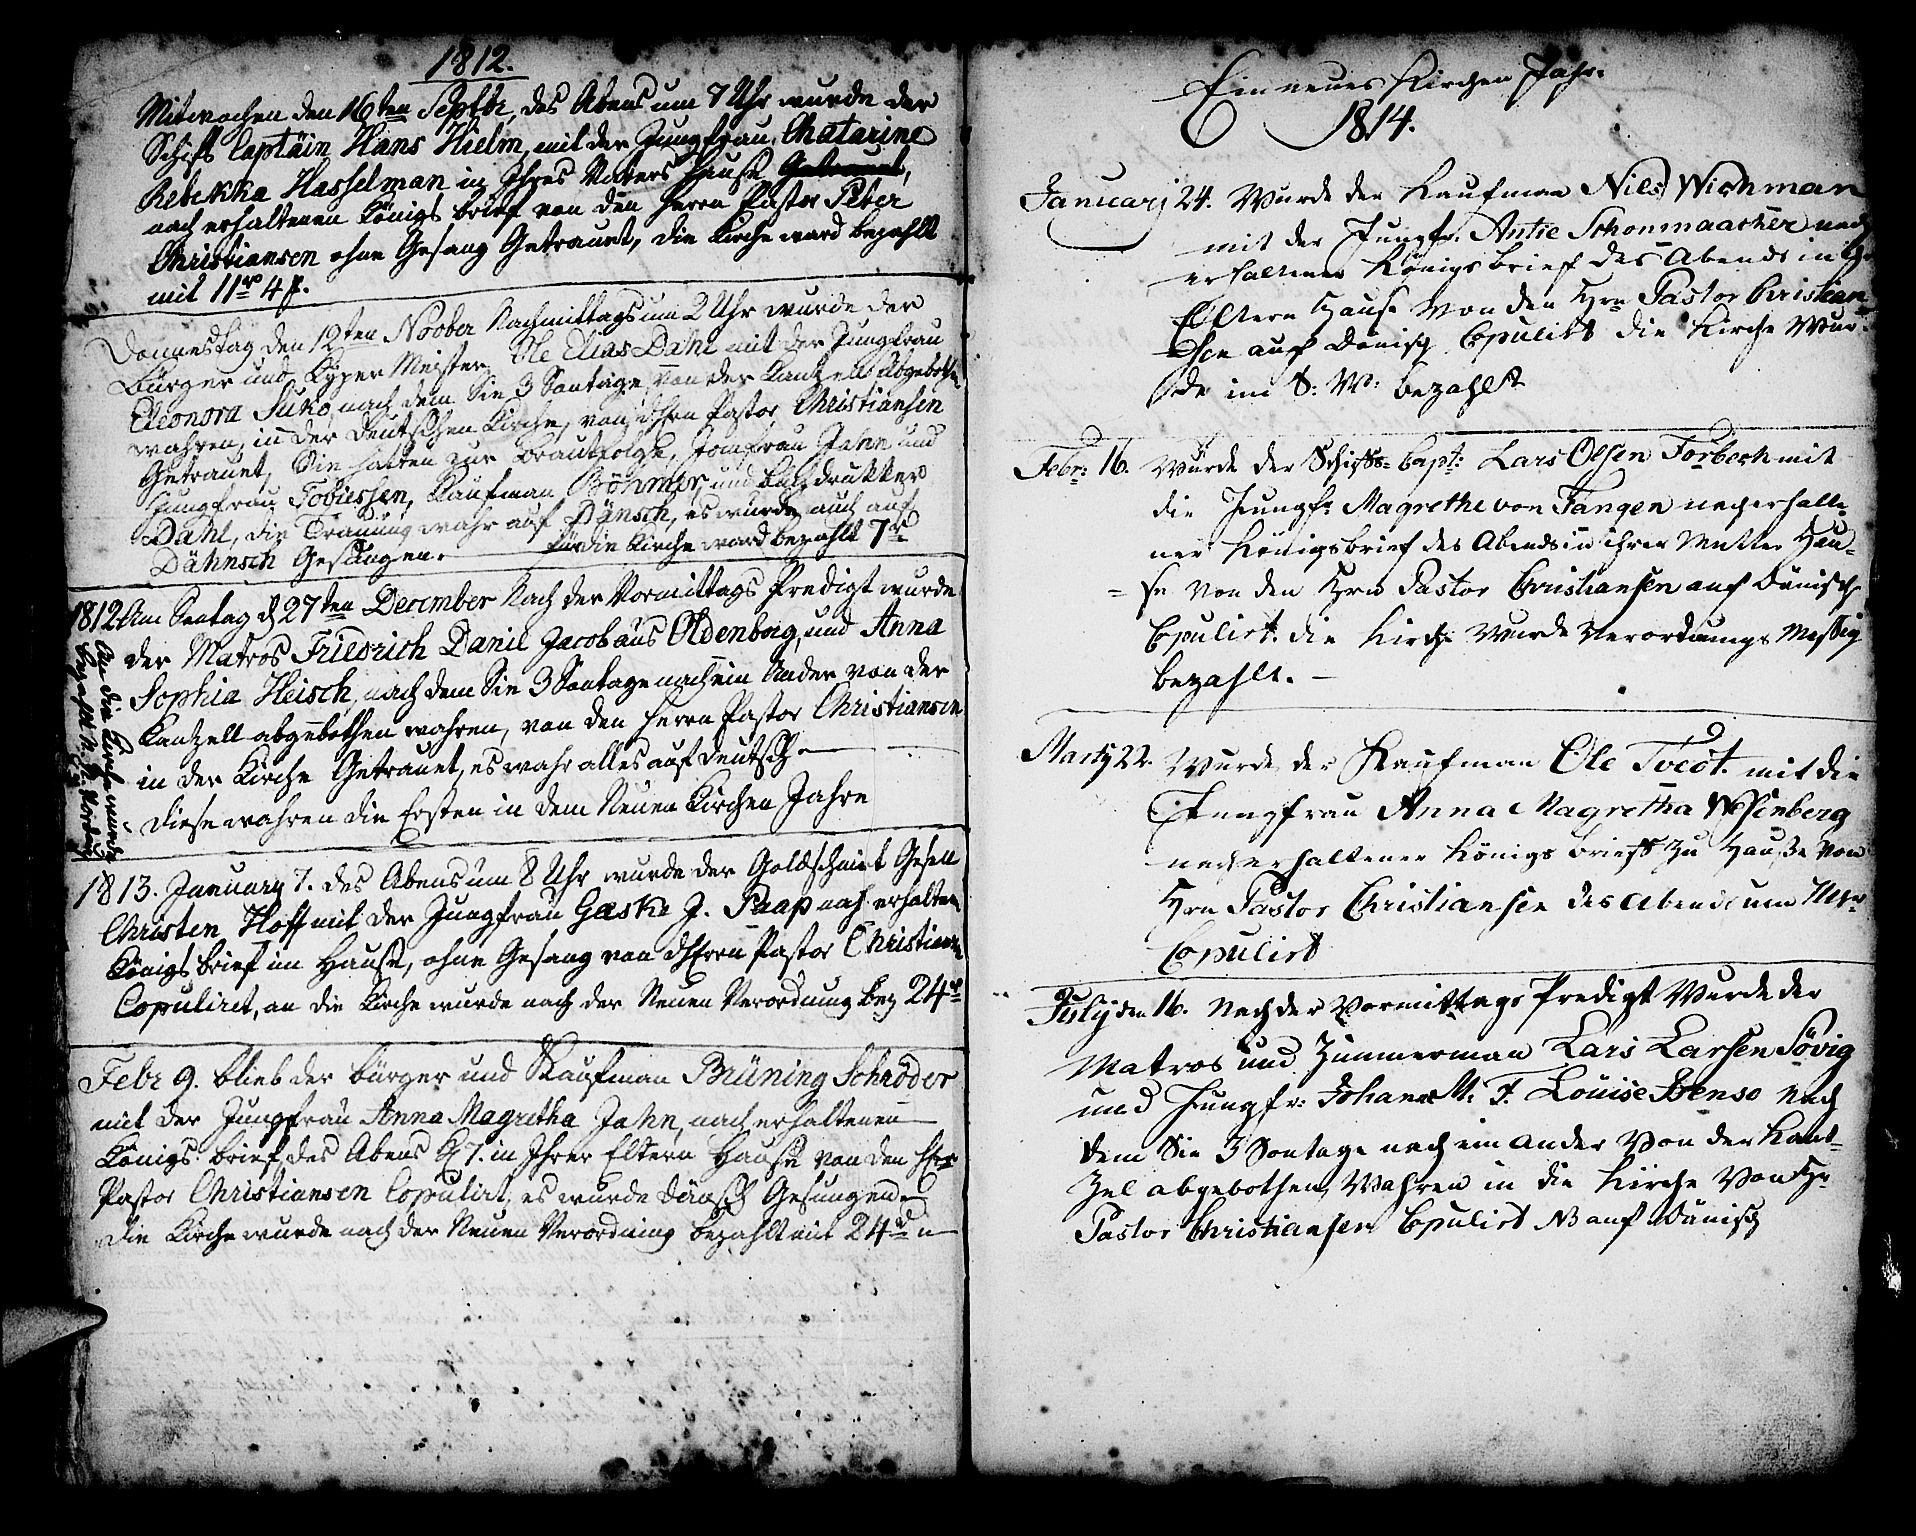 1812.
Mitwochen den 16ten Septbr, des Abens um 7 Uhr wurde der
Schifs Captäin Hans Hielm, mit der Jungfrau, Chatarine
Rebekka Hasselman in Ihres Vaters Hause Getrauet,
nach erhaltenen Königs brief von den Herrn Pastor Peter
Christiansen ohne Gesang Getrauet, die Kirche ward bezahlt
mit 11 4 β.
Donnestag den 12ten Novber Nachmittags um 2 Uhr wurde der
Bürger und Küper Meister, Ole Elias Dahl mit der Jungfrau
Eleonora Suko, nach dem Sie 3 Sontage, von der Kantzell Abgebothen
wahren, in der Deutschen Kirche, von Pastor Christiansen
Getrauet, Sie hatten zur Brautfolge, Jomfrau Jahn und
Jungfrau Tobiessen, Kaufman Böhmer, und Buchdrukker
Dahl, die Trauung wahr auf Dänsch, es wurde auch auf
Dähnsch Gesungen. für die Kirche ward bezahlt 7
1812 Am Sontag d 27ten December Nach der Vormittags Predigt wurde
der Matros Friedrich Danil Jacobäus Oldenborg, und Anna
Sophia Heisch, nach dem Sie 3 Sontage nach ein Ander von der
Kantzell abgebothen wahren, von den Herrn Pastor Christiansen
in der Kirche Getrauet, es wahr alles auf Deutsch
diese wahren die Ersten in dem Neuen Kirchen Jahre
An die Kirche wurde
bezahlt
1813. January 7. des Abens um 8 Uhr wurde der Goldschmit Gesell
Christen Hoff mit der Jungfrau Gæske J. Paap nach erhalten
Königs brief im Hause, ohne Gesang von dHerrn Pastor Christians
Copuliret, an die Kirche wurde nach der Neuen Verordnung bez 24
Febr 9. blieb der Bürger und Kaufman Brüning Schröder
mit der Jungfrau Anna Magretha Jahn, nach erhaltenen
Königs brief, des Abens 7. in Ihrer Eltern Hause von den Her
Pastor Christiansen Copulirt, es wurde dänsch Gesungen
die Kirche wurde nach der Neuen Verordning bezahlt mit 24
Ein neues Kirchen Jahr.
1814.
Januarj 24. Wurde der Kaufman Nils Wichman
mit der Jungfr. Antie Schonmaacher nach
erhaltener Königs brief des Abends in
Eltern Hause Von den Hrn Pastor Christian
sen auf Dänisch Copulirt die Kirche Wur
de im bezahlt
Febr: 16. Wurde der Schifs-Capt: Lars Olsen Forbech mit
die Jungf: Magrethe von Tangen nach erhalte
ner Königsbrief des Abends in ihrer Mutter Hau-
= se Von den Hrn Pastor Christiansen auf Dänisch
Copulirt. die Kirche Wurde Verordnungs Messig
bezahlt. —
Martij 22. Wurde der Kaufman Ole Tvedt. mit die
Jungfrau Anna Magretha Wesenberg
nach erhaltener Königs brief zu Hause Von
Hrn Pastor Christiansen des Abends um
Copulirt
July den 16. Nach der Vormittags Predigt Wurde der
Matros und Zimmerman Lars Larsen Sövig
und Jungfr: Johane M. F. Louise Stenso nach
dem Sie 3 Sontage nach ein ander Von der Kant-
zel abgebothen, Wahren in die Kirche Von Hr
Pastor Christiansen Copulirt NB auf Dänisch